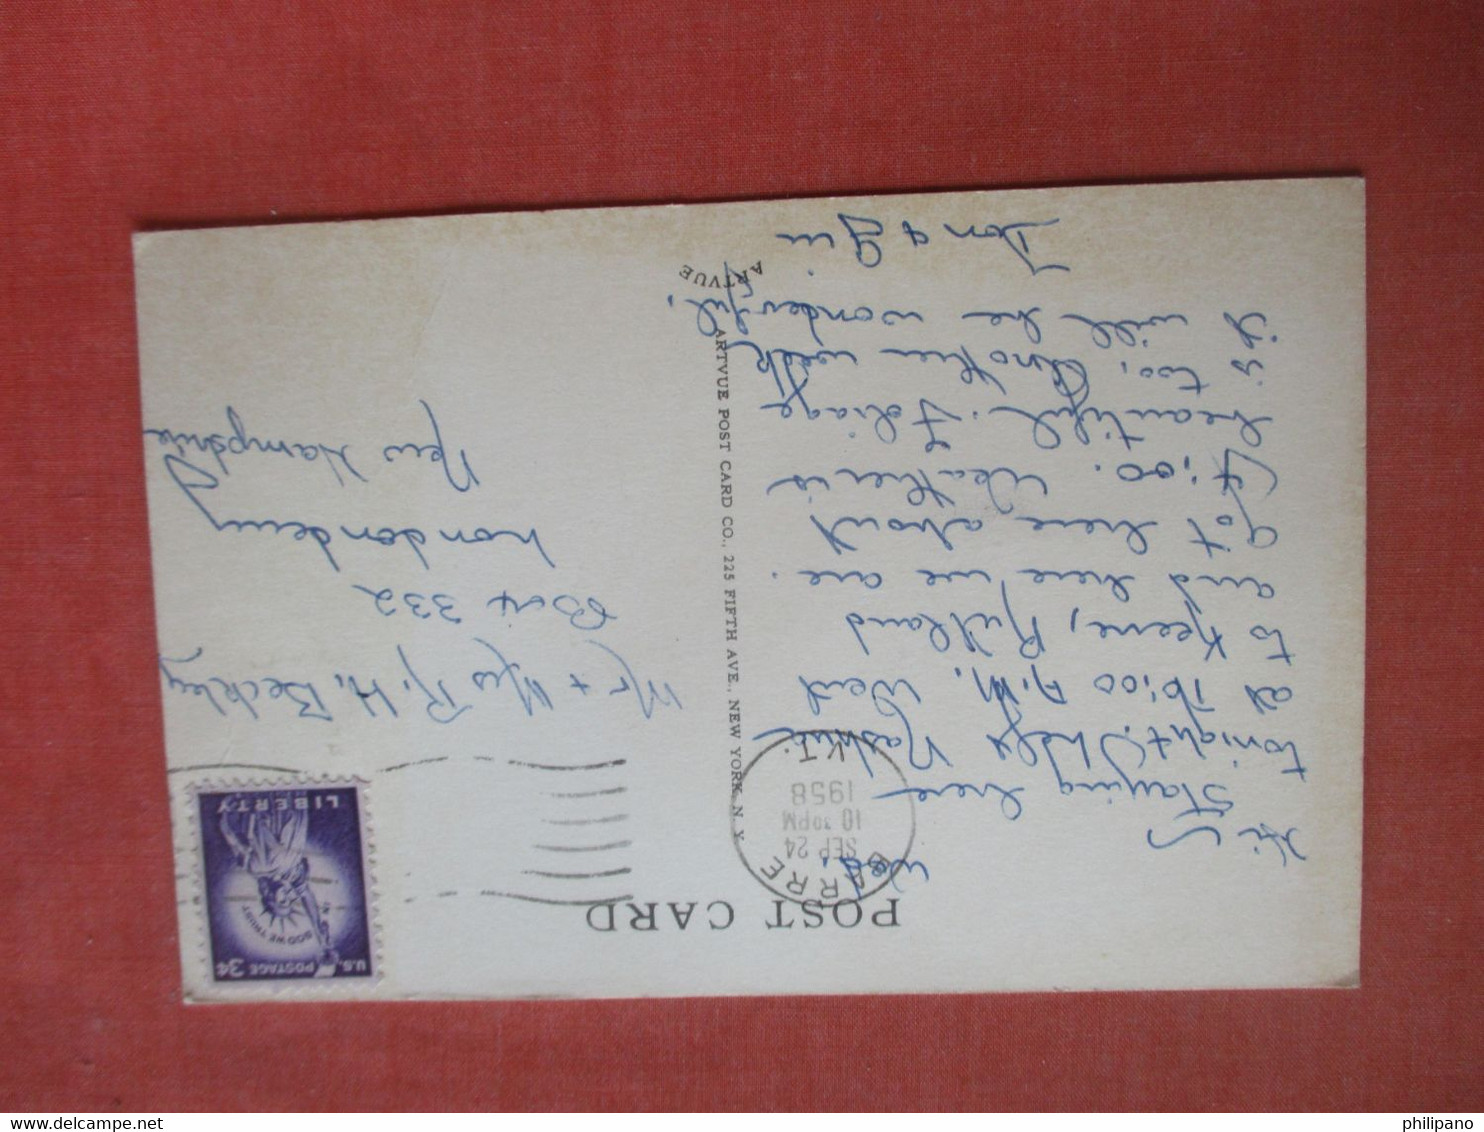 POST CARD
BARRE
SEP 24
10 30PM
1958
VT.
U.S. POSTAGE 3¢
IN GOD WE TRUST
LIBERTY
Wed.
Hi
Staying here
tonight. Left Nashua
at 10:00 A.M. Went
to Keene, Rutland
and here we are.
Got here about
4:00. Weather is
beautiful. Foliage
is too. Another week
it will be wonderful.
Mr + Mrs R. H. Beckley
Box 332
Londonderry
New Hampshire
ARTVUE
ARTVUE POST CARD CO., 225 FIFTH AVE., NEW YORK, N. Y.
philipano